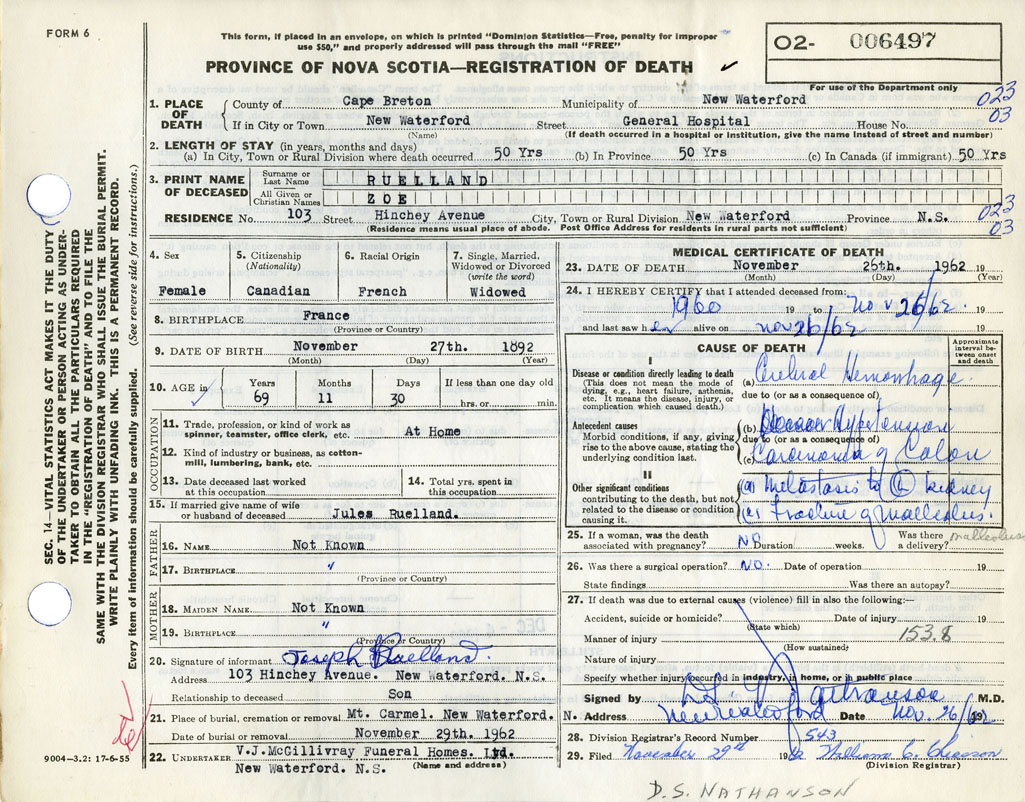 FORM 6
This form, if placed in an envelope, on which is printed "Dominion Statistics—Free, penalty for improper
use $50," and properly addressed will pass through the mail "FREE"
PROVINCE OF NOVA SCOTIA—REGISTRATION OF DEATH ✓
02- 006497
For use of the Department only
023
03
1. PLACE OF DEATH
County of Cape Breton Municipality of New Waterford
If in City or Town New Waterford Street General Hospital House No.
(Name) (If death occurred in a hospital or institution, give the name instead of street and number)
2. LENGTH OF STAY (in years, months and days)
(a) In City, Town or Rural Division where death occurred 50 Yrs (b) In Province 50 Yrs (c) In Canada (if immigrant) 50 Yrs
3. PRINT NAME OF DECEASED
Surname or Last Name RUELLAND
All Given or Christian Names ZOE
RESIDENCE No. 103 Street Hinchey Avenue City, Town or Rural Division New Waterford Province N.S.
(Residence means usual place of abode. Post Office Address for residents in rural parts not sufficient)
023
03
4. Sex
Female
5. Citizenship
(Nationality)
Canadian
6. Racial Origin
French
7. Single, Married,
Widowed or Divorced
(write the word)
Widowed
8. BIRTHPLACE France
(Province or Country)
9. DATE OF BIRTH November 27th. 1892
(Month) (Day) (Year)
10. AGE in ✓
Years Months Days If less than one day old
69 11 30 hrs. or min.
OCCUPATION
11. Trade, profession, or kind of work as
spinner, teamster, office clerk, etc. At Home
12. Kind of industry or business, as cotton-
mill, lumbering, bank, etc.
13. Date deceased last worked
at this occupation
14. Total yrs. spent in
this occupation
15. If married give name of wife
or husband of deceased Jules Ruelland.
FATHER
16. NAME Not Known
17. BIRTHPLACE "
(Province or Country)
MOTHER
18. MAIDEN NAME Not Known
19. BIRTHPLACE "
(Province or Country)
20. Signature of informant Joseph Ruelland.
Address 103 Hinchey Avenue. New Waterford. N.S.
Relationship to deceased Son
21. Place of burial, cremation or removal Mt. Carmel. New Waterford.
Date of burial or removal November 29th. 1962
22. UNDERTAKER V.J.McGillivray Funeral Homes. Ltd.
New Waterford. N.S. (Name and address)
MEDICAL CERTIFICATE OF DEATH
23. DATE OF DEATH November 26th. 1962 19
(Month) (Day) (Year)
24. I HEREBY CERTIFY that I attended deceased from:
1960 19 to Nov 26/62 19
and last saw her alive on Nov 26/62 19
CAUSE OF DEATH
Approximate
interval be-
tween onset
and death
I
Disease or condition directly leading to death
(This does not mean the mode of
dying, e.g., heart failure, asthenia,
etc. It means the disease, injury, or
complication which caused death.)
(a) Cerebral Hemorrhage
due to (or as a consequence of)
Antecedent causes
Morbid conditions, if any, giving
rise to the above cause, stating the
underlying condition last.
(b) Hypertension
due to (or as a consequence of)
(c) Carcinoma of Colon
II
Other significant conditions
contributing to the death, but not
related to the disease or condition
causing it.
(a) Metastasis to (L) kidney
(c) Fracture of malleolus.
25. If a woman, was the death
associated with pregnancy? NO Duration weeks. Was there
a delivery?
malleolus
26. Was there a surgical operation? NO. Date of operation 19
State findings Was there an autopsy?
27. If death was due to external causes (violence) fill in also the following:—
Accident, suicide or homicide? Date of injury 19
(State which)
Manner of injury 153.8
(How sustained)
Nature of injury
Specify whether injury occurred in industry, in home, or in public place
Signed by D.S. Nathanson M.D.
N. Address New Waterford Date Nov. 26/62
28. Division Registrar's Record Number 543
29. Filed November 29th 1962
(Division Registrar)
D.S. NATHANSON
SEC. 14—VITAL STATISTICS ACT MAKES IT THE DUTY
OF THE UNDERTAKER OR PERSON ACTING AS UNDER-
TAKER TO OBTAIN ALL THE PARTICULARS REQUIRED
IN THE "REGISTRATION OF DEATH" AND TO FILE THE
SAME WITH THE DIVISION REGISTRAR WHO SHALL ISSUE THE BURIAL PERMIT.
WRITE PLAINLY WITH UNFADING INK. THIS IS A PERMANENT RECORD.
Every item of information should be carefully supplied. (See reverse side for instructions.)
9004-3.2: 17-6-55